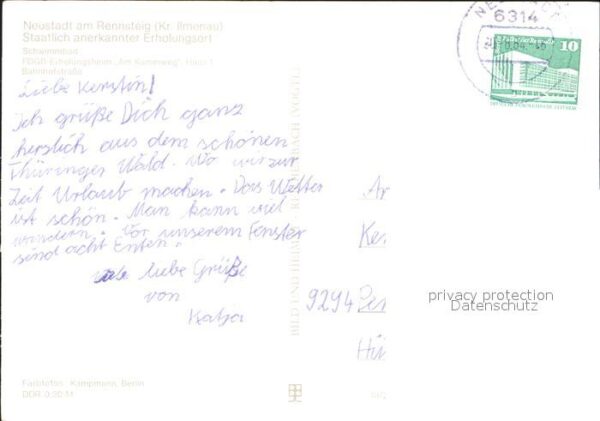 Neustadt am Rennsteig (Kr. Ilmenau)
Staatlich anerkannter Erholungsort
Schwimmbad
FDGB-Erholungsheim „Am Kammweg“, Haus 1
Bahnhofstraße
Liebe Kerstin!
Ich grüße Dich ganz
herzlich aus dem schönen
Thüringer Wald. Wo wir zur
Zeit Urlaub machen. Das Wetter
ist schön. Man kann viel
wandern. Vor unserem Fenster
sind acht Enten.
viele liebe Grüße
von
Katja
6314
10
An
Ker
9294 Pen
Hi
privacy protection
Datenschutz
BILD UND HEIMAT REICHENBACH (VOGTL)
Farbfotos: Kampmann, Berlin
DDR 0,20 M